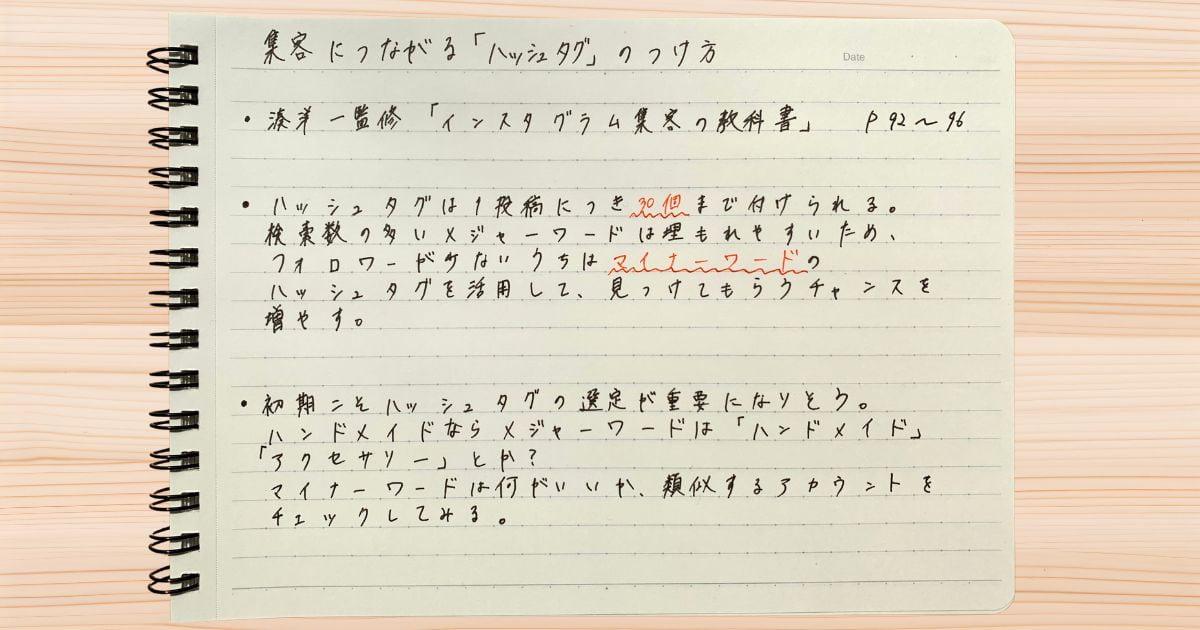 集客につながる「ハッシュタグ」のつけ方
Date
・湊洋一監修「インスタグラム集客の教科書」 P92〜96
・ハッシュタグは1投稿につき30個まで付けられる。
検索数の多いメジャーワードは埋もれやすいため、
フォロワーが少ないうちはマイナーワードの
ハッシュタグを活用して、見つけてもらうチャンスを
増やす。
・初期こそハッシュタグの選定が重要になりそう。
ハンドメイドならメジャーワードは「ハンドメイド」
「アクセサリー」とか?
マイナーワードは何がいいか、類似するアカウントを
チェックしてみる。